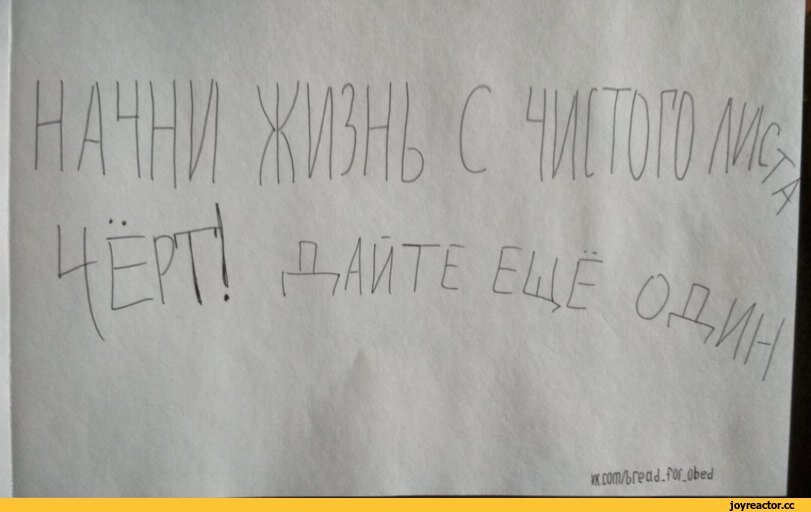 НАЧНИ ЖИЗНЬ С ЧИСТОГО ЛИСТА
ЧЁРТ! ДАЙТЕ ЕЩЁ ОДИН
vk.com/bread_for_obed
joyreactor.cc